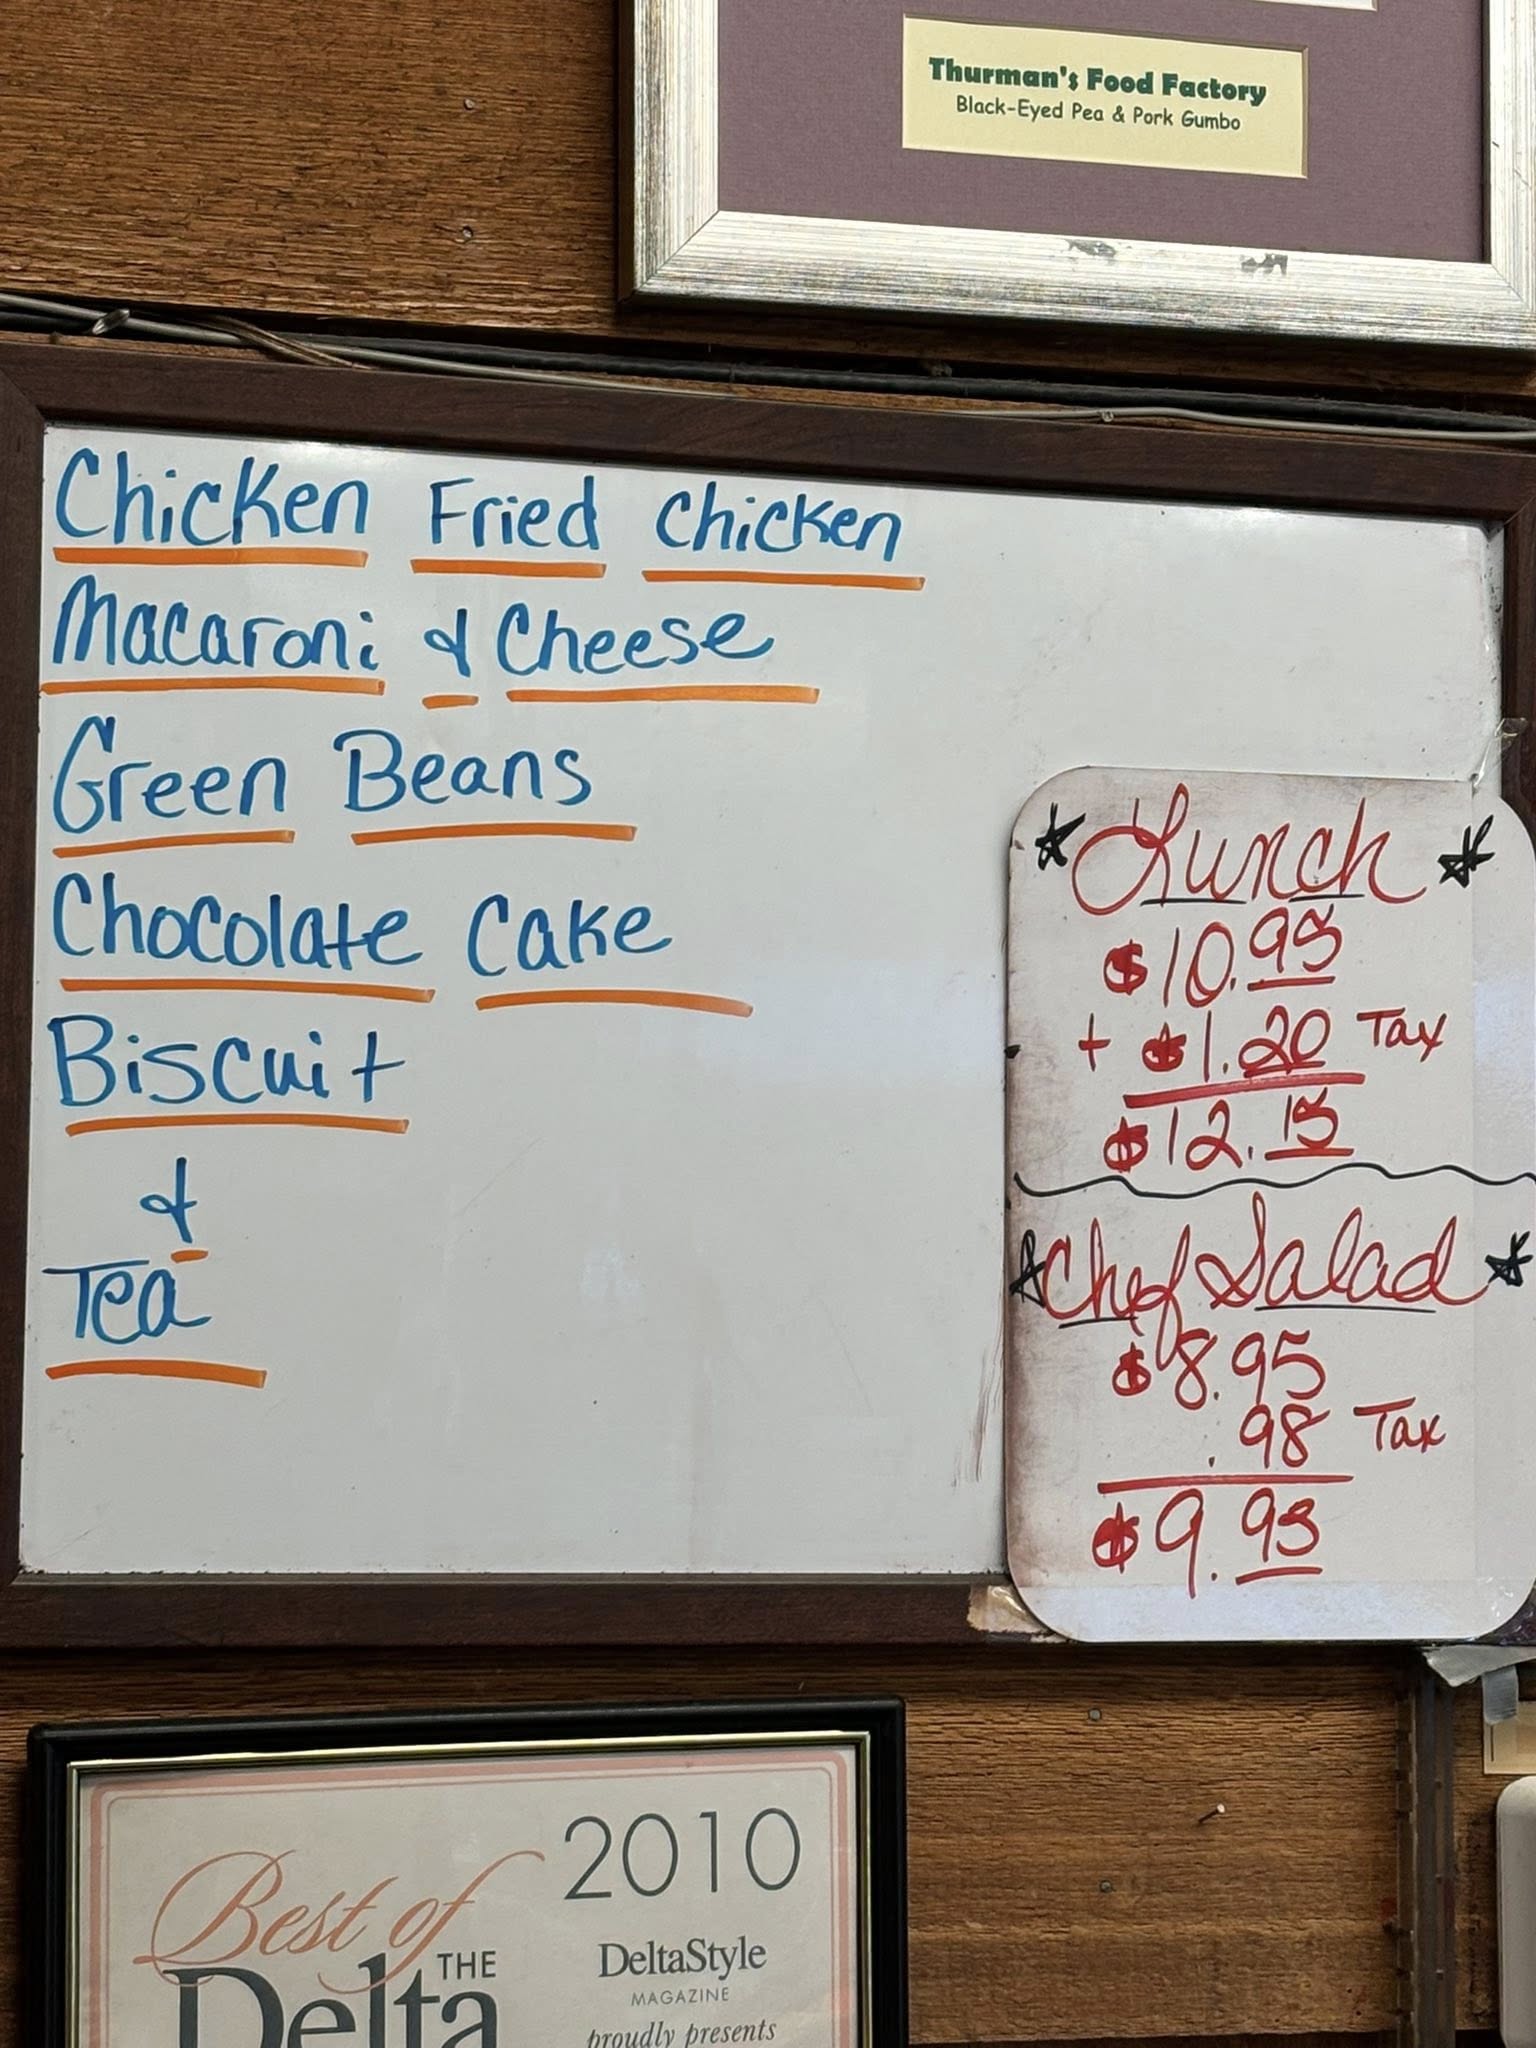 Thurman's Food Factory
Black-Eyed Pea & Pork Gumbo
Chicken Fried Chicken
Macaroni & Cheese
Green Beans
Chocolate Cake
Biscuit
&
Tea
Lunch
$10.95
+ $1.20 Tax
$12.15
Chef Salad
$8.95
.98 Tax
$9.93
2010
Best of
THE
Delta
DeltaStyle
MAGAZINE
proudly presents